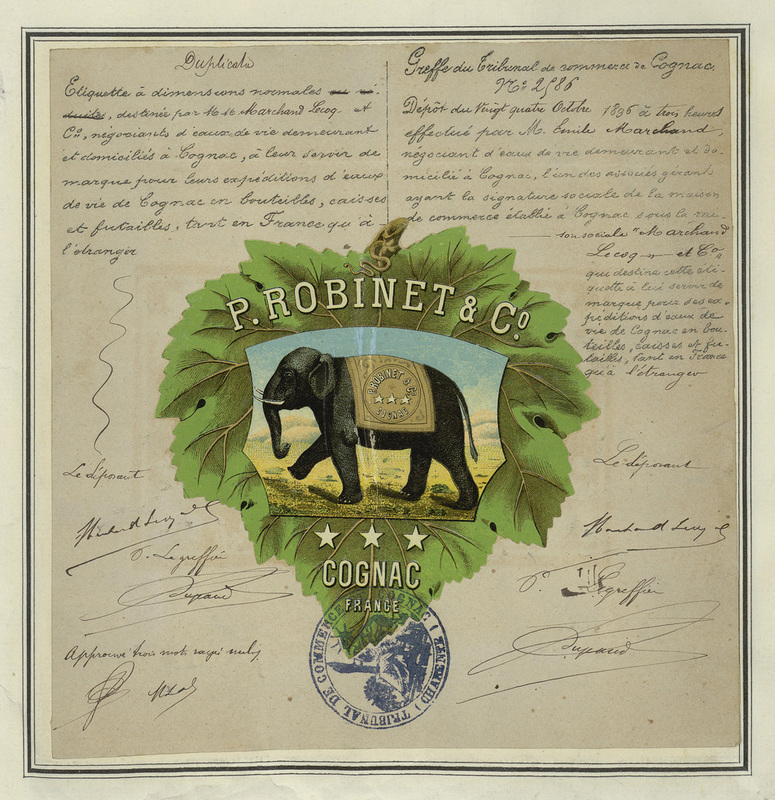 Duplicata
Etiquette à dimensions normales
, destinée par M. M. Marchand Lecoq et
Cie, négociants d'eaux de vie demeurant
et domiciliés à Cognac, à leur servir de
marque pour leurs expéditions d'eaux
de vie de Cognac en bouteilles, caisses
et futailles, tant en France qu'à
l'étranger
Greffe du Tribunal de commerce de Cognac
No
Dépôt du Vingt quatre Octobre à trois heures
effectué par M. Emile Marchand,
négociant d'eaux de vie demeurant et do-
micilié à Cognac, l'un des associés gérant
ayant la signature sociale de la maison
de commerce établie à Cognac sous la rai-
son sociale "Marchand
Lecoq et Co
qui destine cette éti-
quette à lui servir de
marque pour ses ex-
péditions d'eaux de
vie de Cognac en bou-
teilles, caisses et fu-
tailles, tant en France
qu'à l'étranger
P. ROBINET & Co
P. ROBINET & Co
COGNAC
COGNAC
FRANCE
Le déposant
Le greffier
Dupaud
Approuvé trois mots rayés nuls
Le déposant
Le greffier
Dupaud
TRIBUNAL DE COMMERCE COGNAC (CHARENTE)